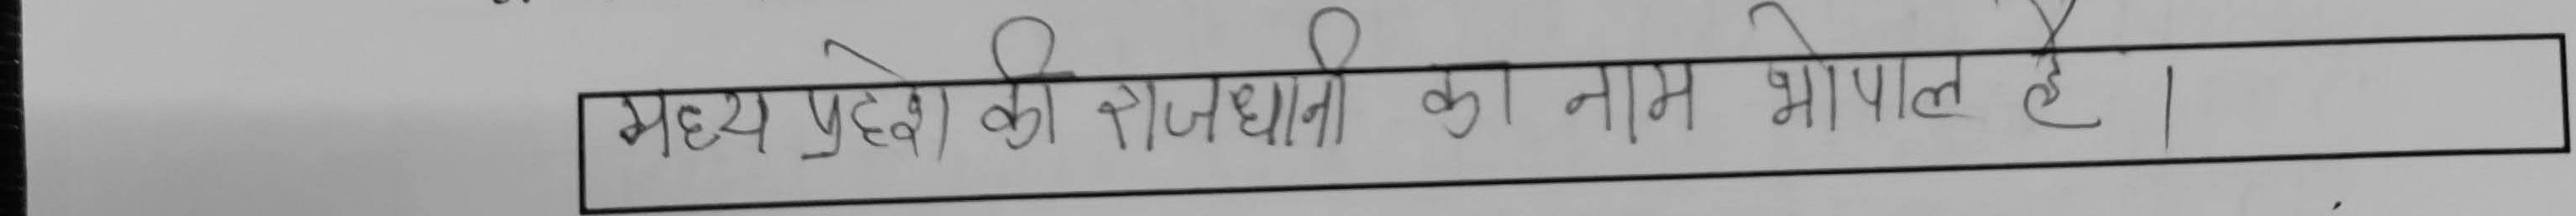 मध्य प्रदेश की राजधानी का नाम भोपाल है ।